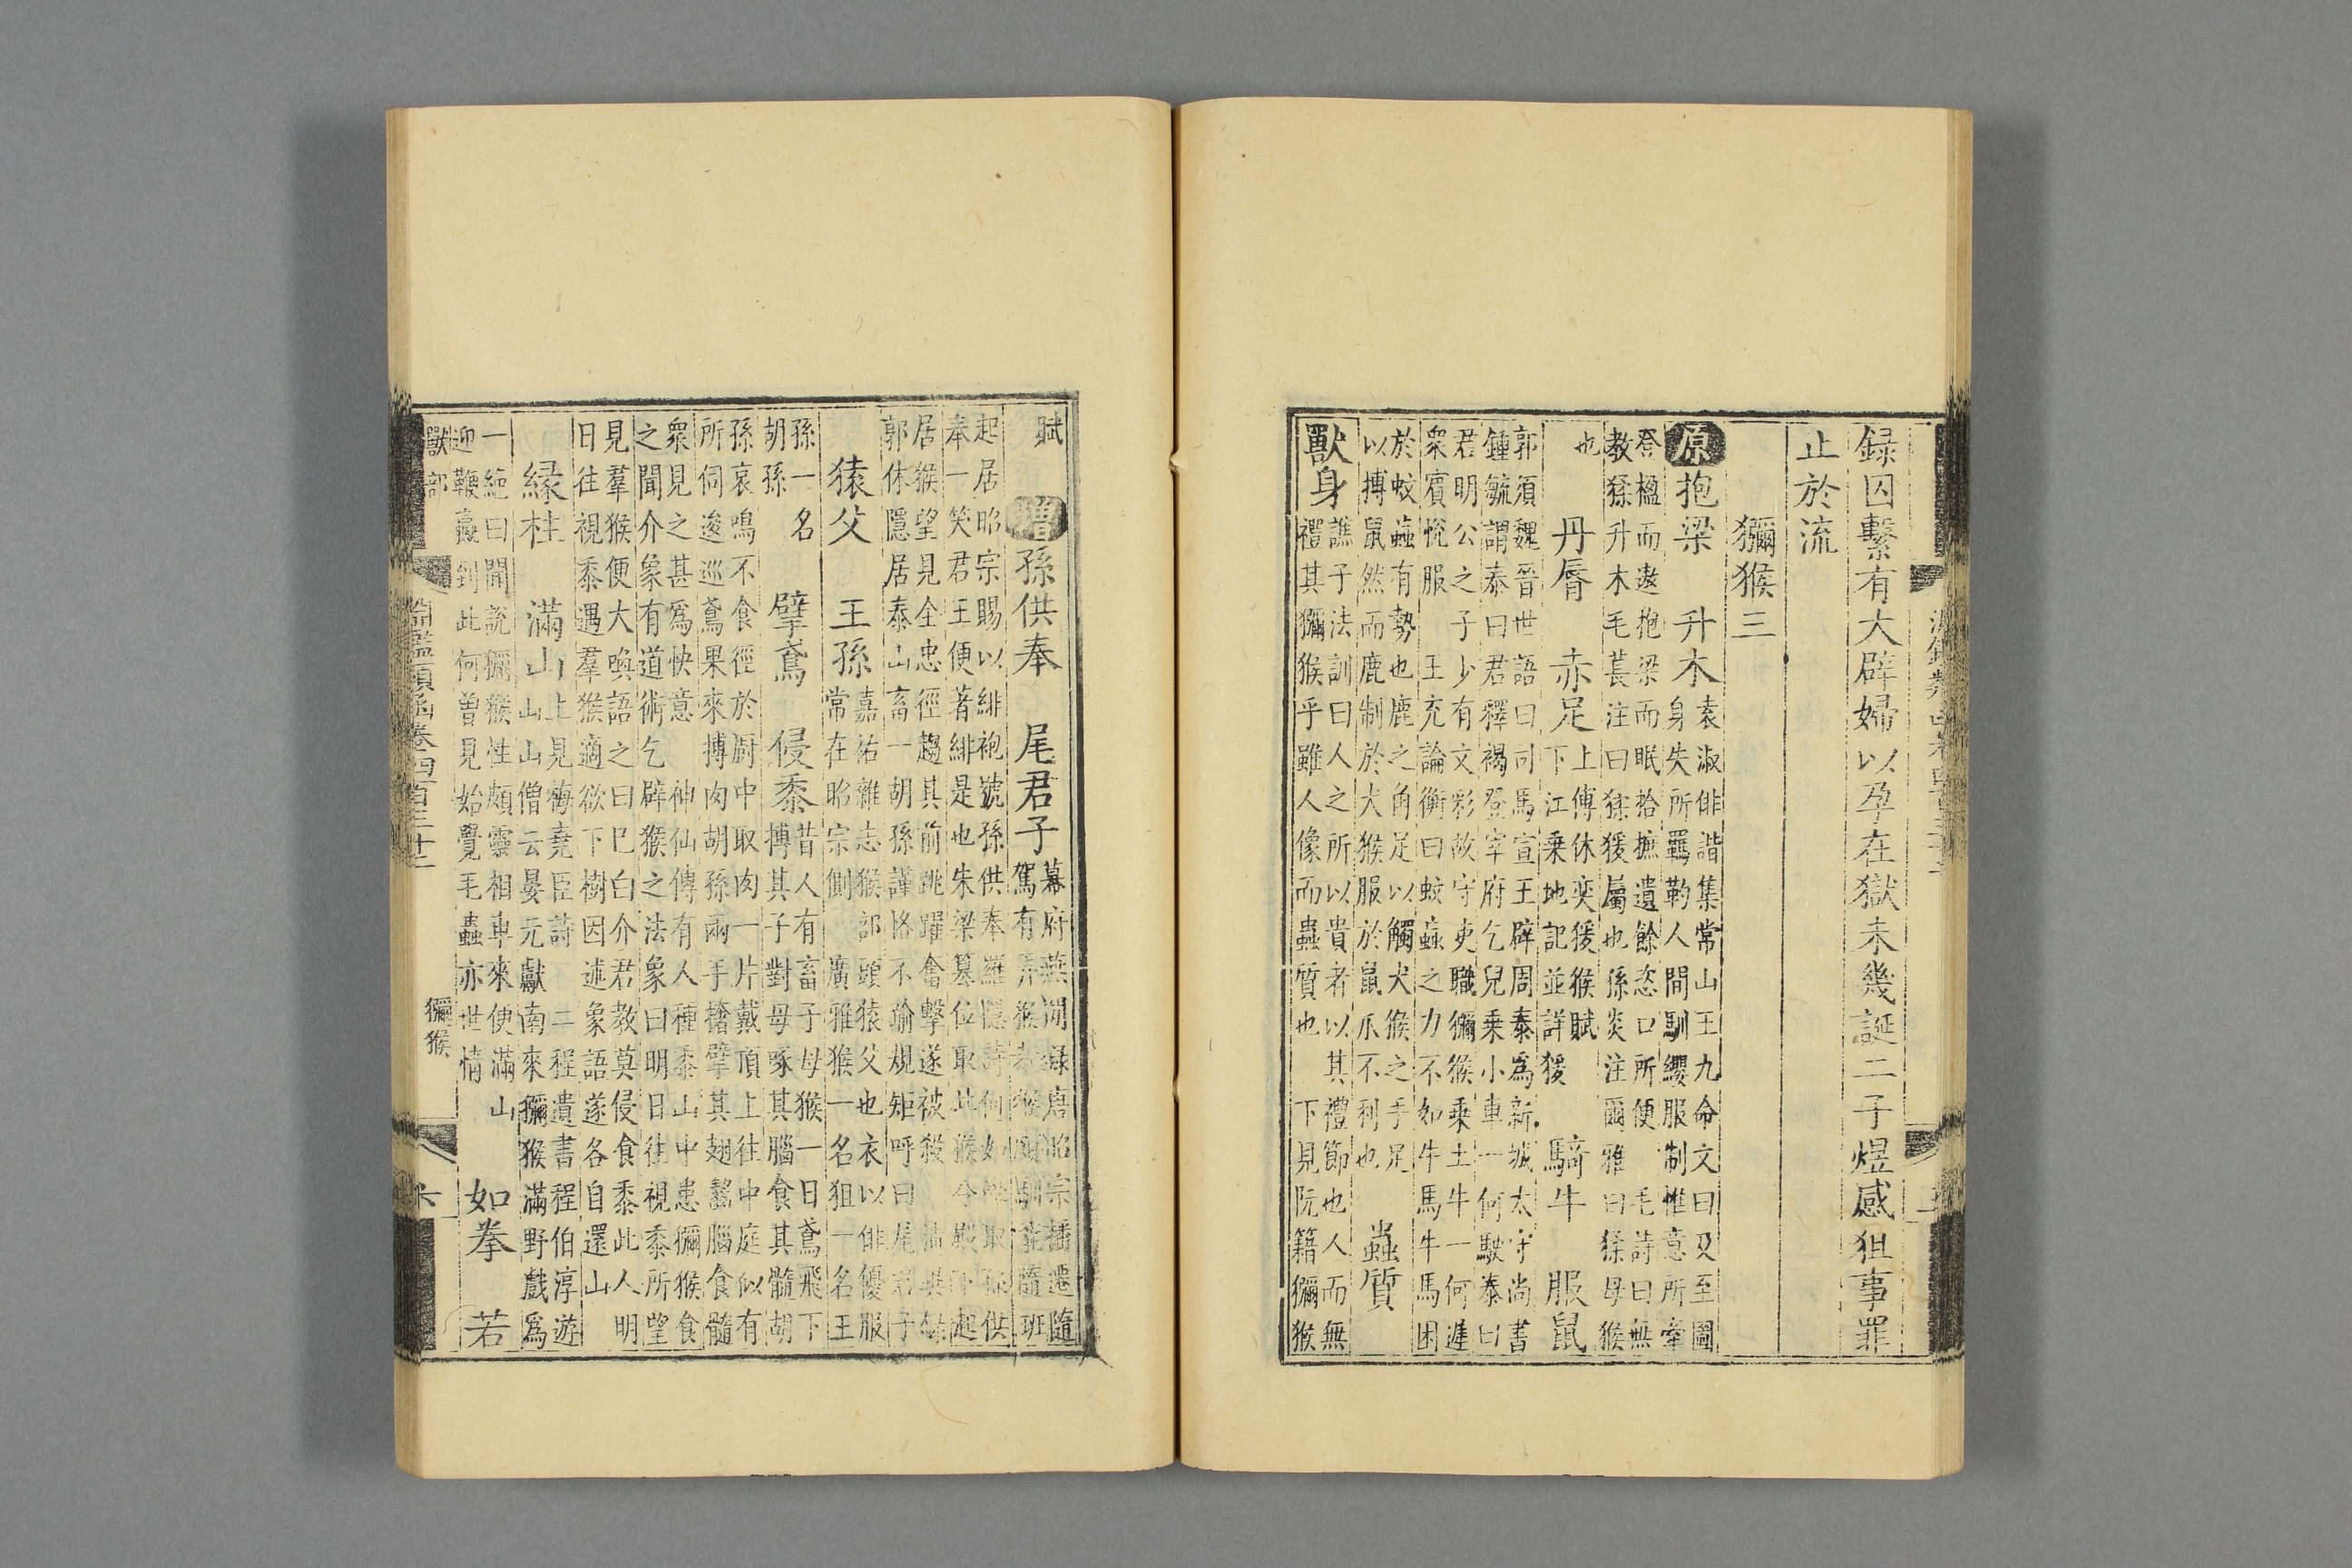 録囚繫有大辟婦以孕在獄未幾誕二子煜感狙事罪
止於流
獼猴三
原抱梁　升木
袁淑俳諧集常山王九命文曰及至圖
身失所羈勒人間馴纓服制惟意所牽
登楹而遨抱梁而眠拾摭遺餘恣口所便　毛詩曰無
教猱升木毛萇注曰猱猨屬也孫炎注爾雅曰猱母猴
也
丹脣　赤足
上傅休奕猨猴賦
下江乗地記並詳猨
騎牛　服鼠
郭頒魏晉世語曰司馬宣王辟周泰為新城太守尚書
鍾毓謂泰曰君釋褐登宰府乞兒乗小車一何駛泰曰
君明公之子少有文彩故守吏職獼猴乗土牛一何遲
衆賓悅服　王充論衡曰蚊蝱之力不如牛馬牛馬困
於蚊蝱有勢也鹿之角足以觸犬猴之手足
以搏鼠然而鹿制於犬猴服於鼠爪不利也
蟲質
獸身
譙子法訓曰人之所以貴者以其禮節也人而無
禮其獼猴乎雖人像而蟲質也　下見阮籍獼猴
賦
增孫供奉　尾君子
幕府燕閒録唐昭宗播遷隨
駕有弄猴者猴頗馴能隨班
起居昭宗賜以緋袍號孫供奉羅隱詩何如學取孫供
奉一笑君王便著緋是也朱梁簒位取此猴令殿下起
居猴望見全忠徑趨其前跳躍奮擊遂被殺　清異録
郭休隱居泰山畜一胡孫謹恪不踰規矩呼曰尾君子
猿父　王孫
嘉祐雜志猴部頭猿父也衣以俳優服
常在昭宗側　廣雅猴一名狙一名王
孫一名
胡孫
擘鳶　侵黍
昔人有畜子母猴一日鳶飛下
搏其子對母啄其腦食其髓胡
孫哀鳴不食徑於厨中取肉一片戴頂上往中庭似有
所伺逡巡鳶果來搏肉胡孫兩手擒擘其翅齧腦食髓
衆見之甚為快意　神仙傳有人種黍山中患獼猴食
之聞介象有道術乞辟猴之法象曰明日往視黍所望
見羣猴便大喚語之曰已白介君教莫侵食黍此人明
日往視黍遇羣猴適欲下樹因述象語遂各自還山
緣柱　滿山
上見梅堯臣詩　二程遺書程伯淳遊
山山僧云晏元獻南來獼猴滿野戲為
一絕曰聞説獼猴性頗靈相車來便滿山
迎鞭羸到此何曾見始覺毛蟲亦世情
如拳　若
獸部
淵鑑類函卷四百三十二
獼猴
六